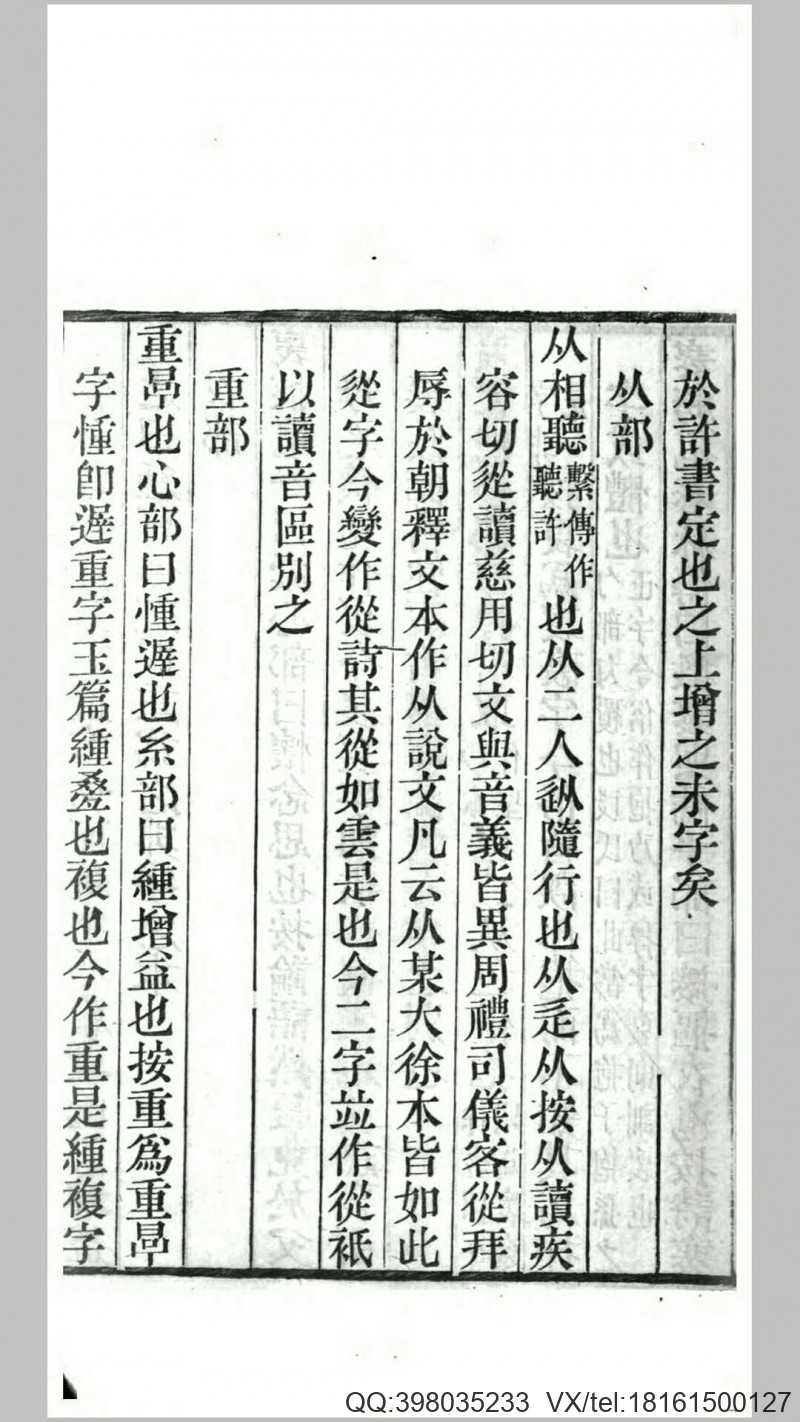 於許書定也之上增之未字矣
从部
从相聽繫傳作聽許也从二人𨑢隨行也从辵从按从讀疾
容切從讀慈用切文與音義皆異周禮司儀客從拜
辱於朝釋文本作从說文凡云从某大徐本皆如此
從字今變作從詩其從如雲是也今二字竝作從祇
以讀音區別之
重部
重㫗也心部曰㥁遲也糸部曰緟增益也按重爲重㫗
字㥁卽遲重字玉篇緟疊也複也今作重是緟複字
QQ:398035233 VX/tel:18161500127